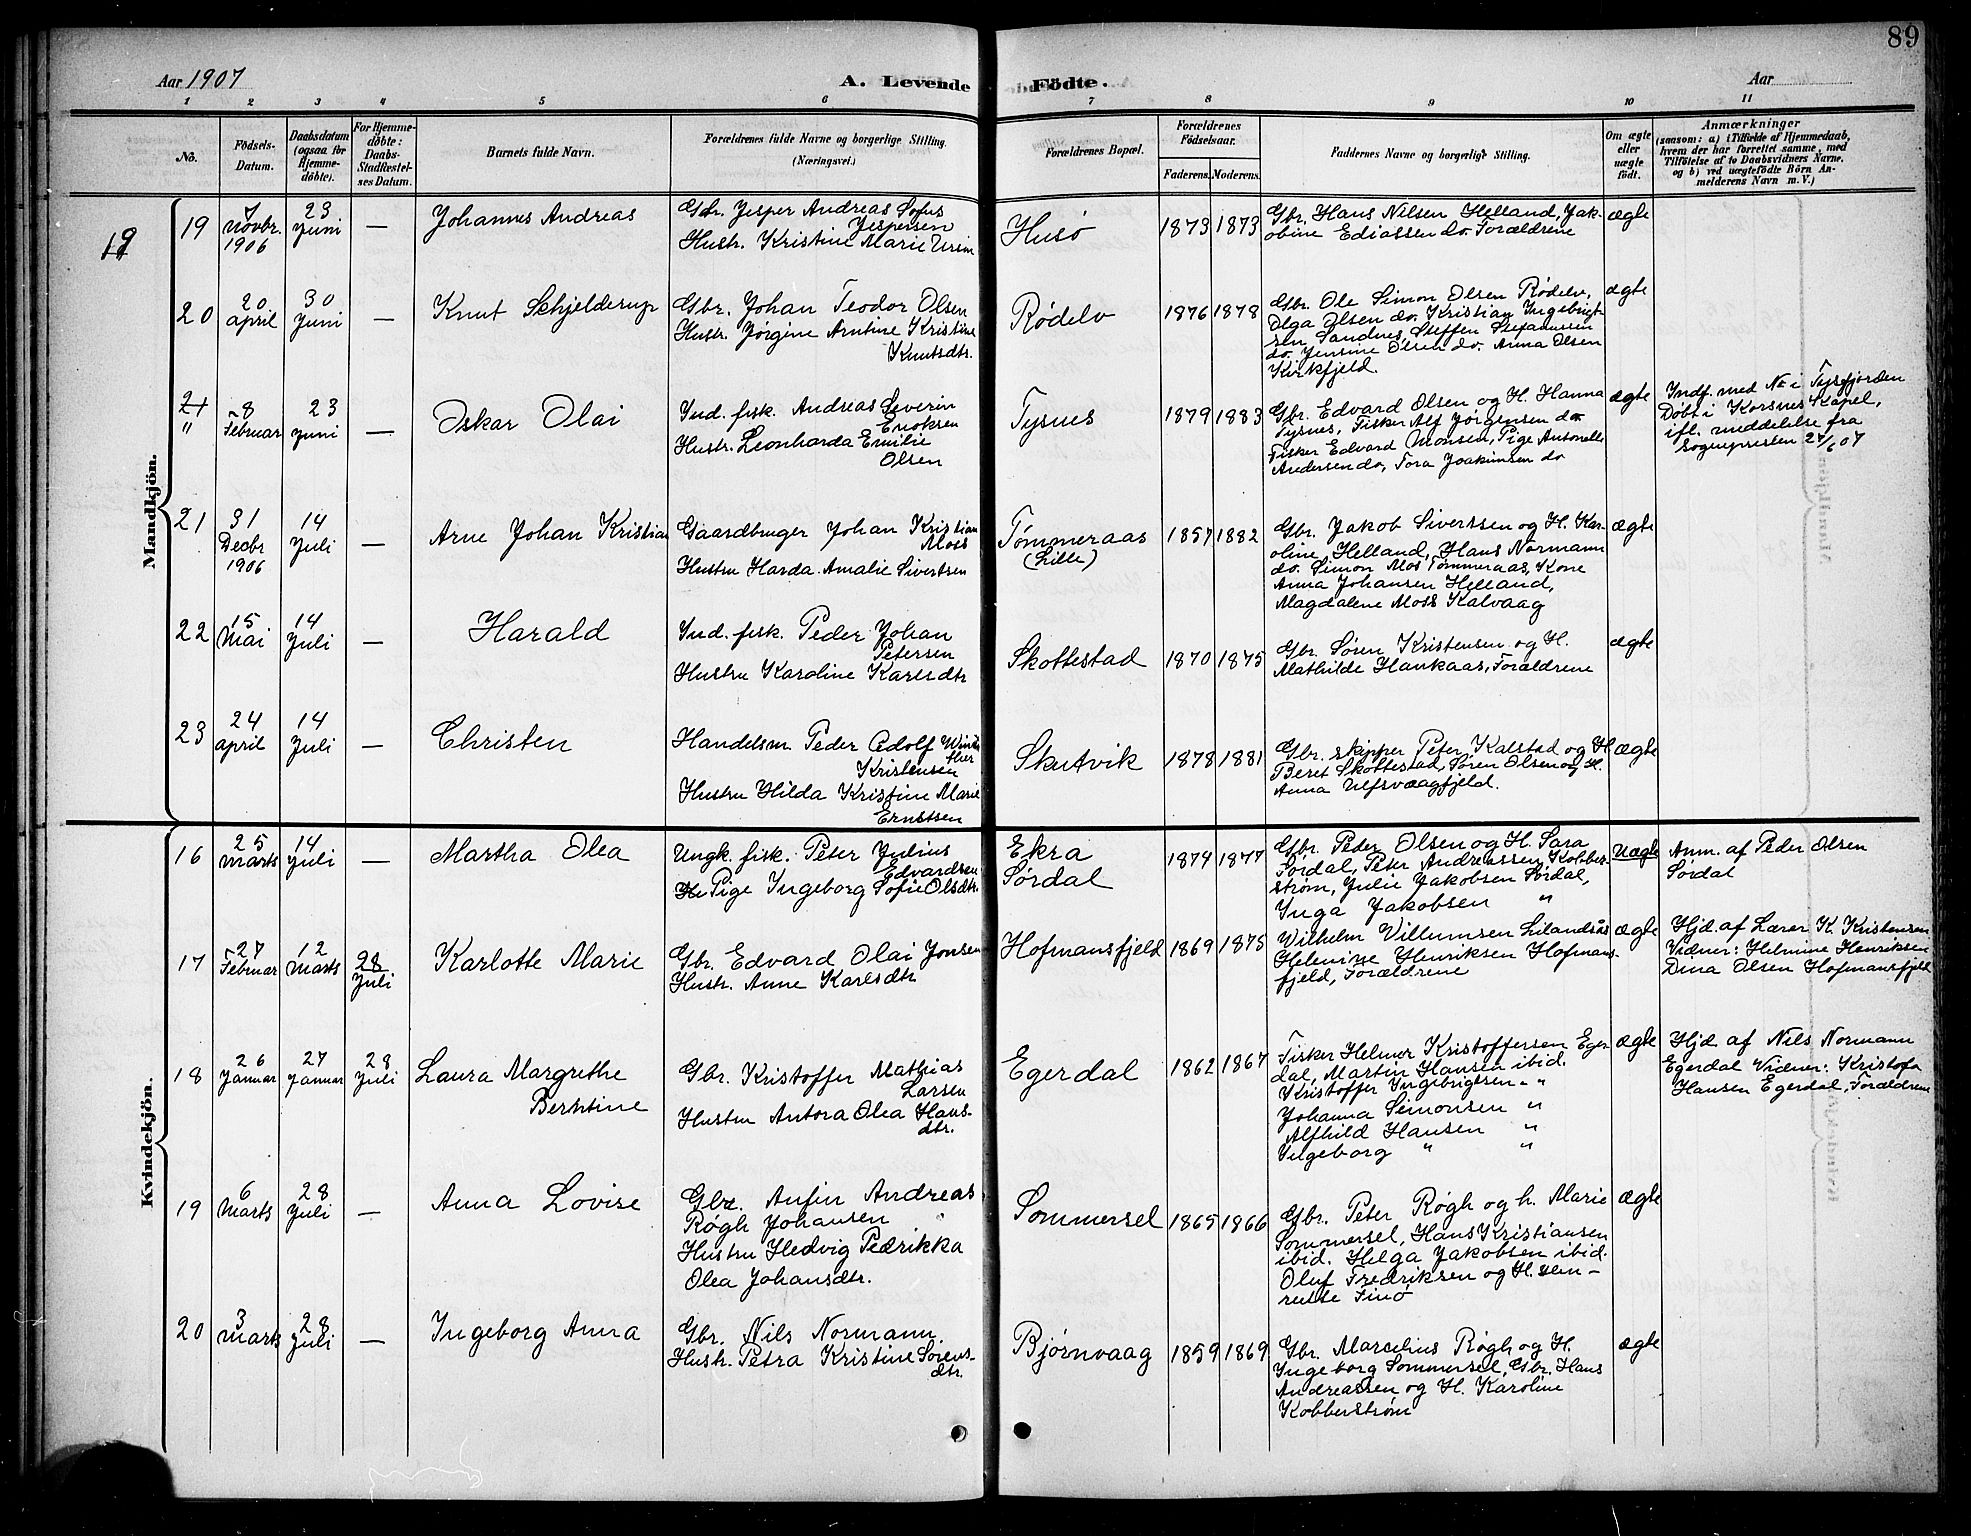 89
Aar 1907
A. Levende Födte.
Aar
1 2 3 4 5 6 7 8 9 10 11
No.
Födsels-
Datum.
Daabsdatum
(ogsaa for
Hjemme-
döbte).
For Hjemme-
döbte:
Daabs-
Stadfæstel-
ses Datum.
Barnets fulde Navn.
Forældrenes fulde Navne og borgerlige Stilling.
(Næringsvei.)
Forældrenes Bopæl.
Forældrenes
Födselsaar.
Faderens. Moderens.
Faddernes Navne og borgerlige Stilling.
Om ægte
eller
uægte
födt.
Anmærkninger
(saasom: a) i Tilfælde af Hjemmedaab,
hvem der har forrettet samme, med
Tilföielse af to Daabsvidners Navne,
og b) ved uægtefödte Börn An-
melderens Navn m. V.)
Mandkjön.
19
7
Novbr.
1906
23
Juni
—
Johannes Andreas
Gbr. Jesper Andreas Sofus
Jespersen
Hustr. Kristine Marie Ursin
Husø
1873 1873
Gbr. Hans Nilsen Helland, Jak-
obine Ediassen do. Forældrene
ægte
20
20
april
30
Juni
—
Knut Schjelderup
Gbr. Johan Teodor Olsen
Hustr. Jørgine Arntine Kristine
Knutsdtr.
Rødelv
1876 1878
Gbr. Ole Simon Olsen Rødelv,
Olga Olsen do. Kristian Ingebrigt-
sen Sandnes, Steffen Stefanussen
do. Jensine Olsen do. Anna Olsen
Kirkfjeld.
ægte
21
"
8
Februar
23
Juni
—
Oskar Olai
Ind. fisk. Andreas Severin
Enoksen
Hustr. Leonharda Emilie
Olsen
Tysnes
1879 1883
Gbr. Edvard Olsen og H. Hanna
Tysnes, Fisker Alf Jørgensen do
Fisker Edvard Monsen, Pige Antonelle
Andersen do, Tora Joakimsen do
ægte
Indf. med No i Tysfjorden
Døbt i Korsnes Kapel,
ifl. meddelelse fra
Sognepresten 24/6 07
21
31
Decbr
1906
14
Juli
—
Arne Johan Kristian
Gaardbruger Johan Kristian
Moss
Hustru Harda Amalie Sivertsen
Tømmeraas
(Lille)
1857 1882
Gbr. Jakob Sivertsen og H. Kar-
oline Helland, Hans Normann
do. Simon Mos Tømmeraas, Kone
Anna Johansen Helland,
Magdalene Moss Kalvaag
ægte
22
15
Mai
14
Juli
—
Harald
Ind. fisk. Peder Johan
Petersen
Hustru Karoline Karlsdtr
Skottestad
1870 1875
Gbr. Søren Kristensen og H.
Mathilde Haukaas, Forældrene
ægte
23
24
april
14
Juli
—
Christen
Handelsm. Peder Adolf Wint
ther
Kristensen
Hustru Hilda Kristine Marie
Ernstsen
Skutvik
1878 1881
Gbr. skipper Peter Kalstad og H
Beret Skottestad, Søren Olsen og H.
Anna Ulfsvaagfjeld.
ægte
Kvindekjön.
16
25
marts
14
Juli
—
Martha Olea
Ungk. fisk. Peter Julius
Edvardsen
Pige Ingeborg Sofie Olsdtr
Ekra
Sørdal
1874 1877
Gbr. Peder Olsen og H. Sara
Sørdal, Peter Andreassen Kobber-
strøm, Julie Jakobsen Sørdal,
Inga Jakobsen "
Uægte
Anm. af Peder Olsen
Sørdal
17
27
Februar
12
Marts
28
Juli
Karlotte Marie
Gbr. Edvard Olai Jonsen
Hustr. Anne Karlsdtr
Hofmansfjeld
1869 1875
Wilhelm Villumsen Lilandsås
Helmine Henriksen Hofmans-
fjeld, Forældrene
ægte
Hjd. af Lærer K. Kristensen
Vidner: Helmine Henriksen
Dina Olsen Hofmansfjeld
18
26
Januar
27
Januar
28
Juli
Laura Margrethe
Berntine
Gbr. Kristoffer Mathias
Larsen
Hustru Antora Olea Hans-
dtr.
Egerdal
1862 1867
Fisker Helmer Kristoffersen Eger-
dal, Martin Hansen ibid.
Kristoffer Ingebrigtsen "
Johanna Simonsen "
Alfhild Hansen "
Ingeborg " "
ægte
Hjd. af Nils Normann
Egerdal Vidner: Kristofa
Hansen Egerdal, Forældrene
19
6
Marts
28
Juli
—
Anna Lovise
Gbr. Anfin Andreas
Røgh Johansen
Hustru Hedvig Pedrikka
Olea Johansdtr.
Sommersel
1865 1866
Gbr. Peter Røgh og h. Marie
Sommersel, Hans Kristiansen
ibid. Helga Jakobsen ibid.
Oluf Fredriksen og H. Hen-
rette Finø
ægte
20
3
marts
28
Juli
—
Ingeborg Anna
Gbr. Nils Normann.
Hustr. Petra Kristine Sørens-
dtr.
Bjørnvaag
1859 1869
Gbr. Marcelius Røgh og H.
Ingeborg Sommersel, Gbr. Hans
Andreassen og H. Karoline
Kobberstrøm
ægte